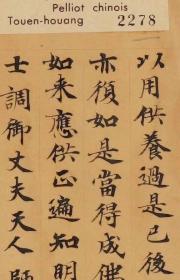 Pelliot chinois
Touen-houang 2278
以用供養過是已後
亦復如是當得成佛
如来應供正遍知明
士調御丈夫天人師